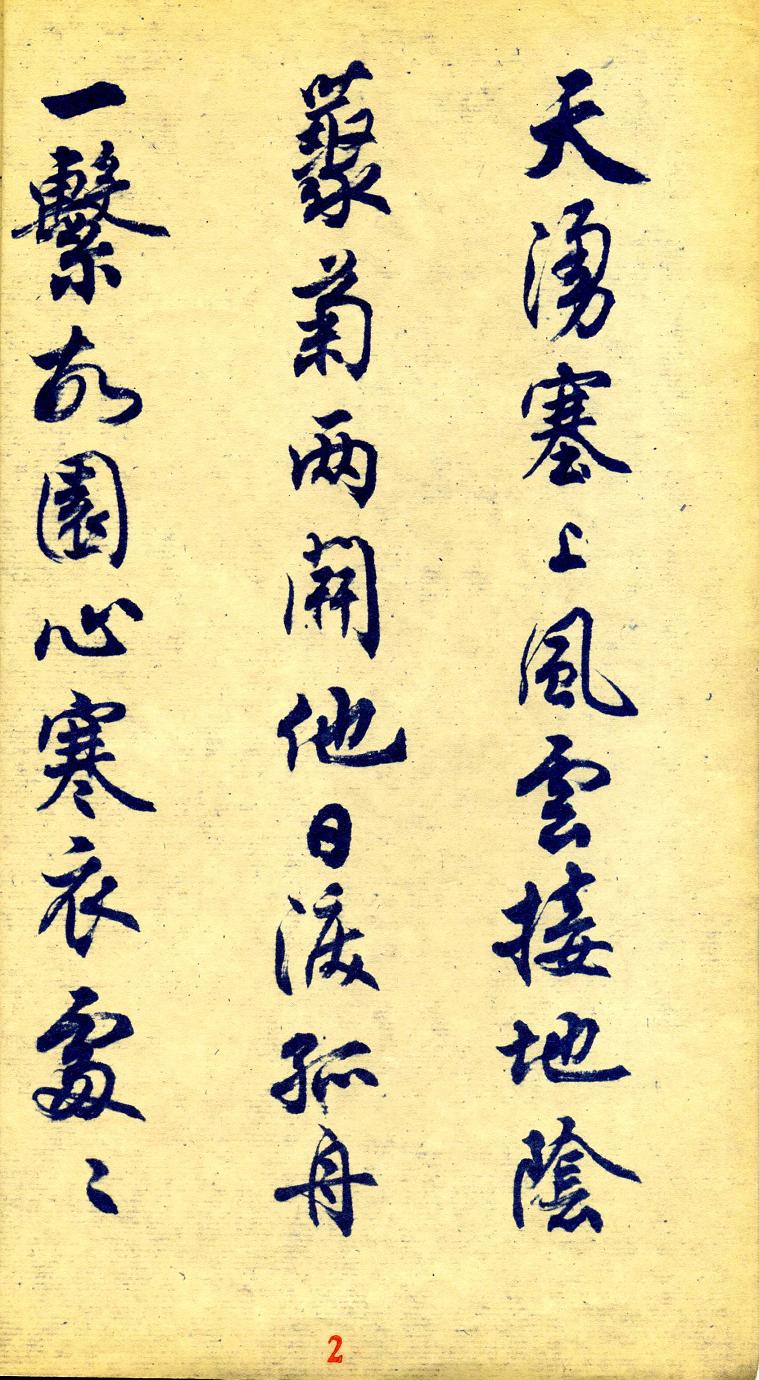 天湧塞上風雲接地陰
藂菊兩開他日淚孤舟
一繫故園心寒衣處〻
2